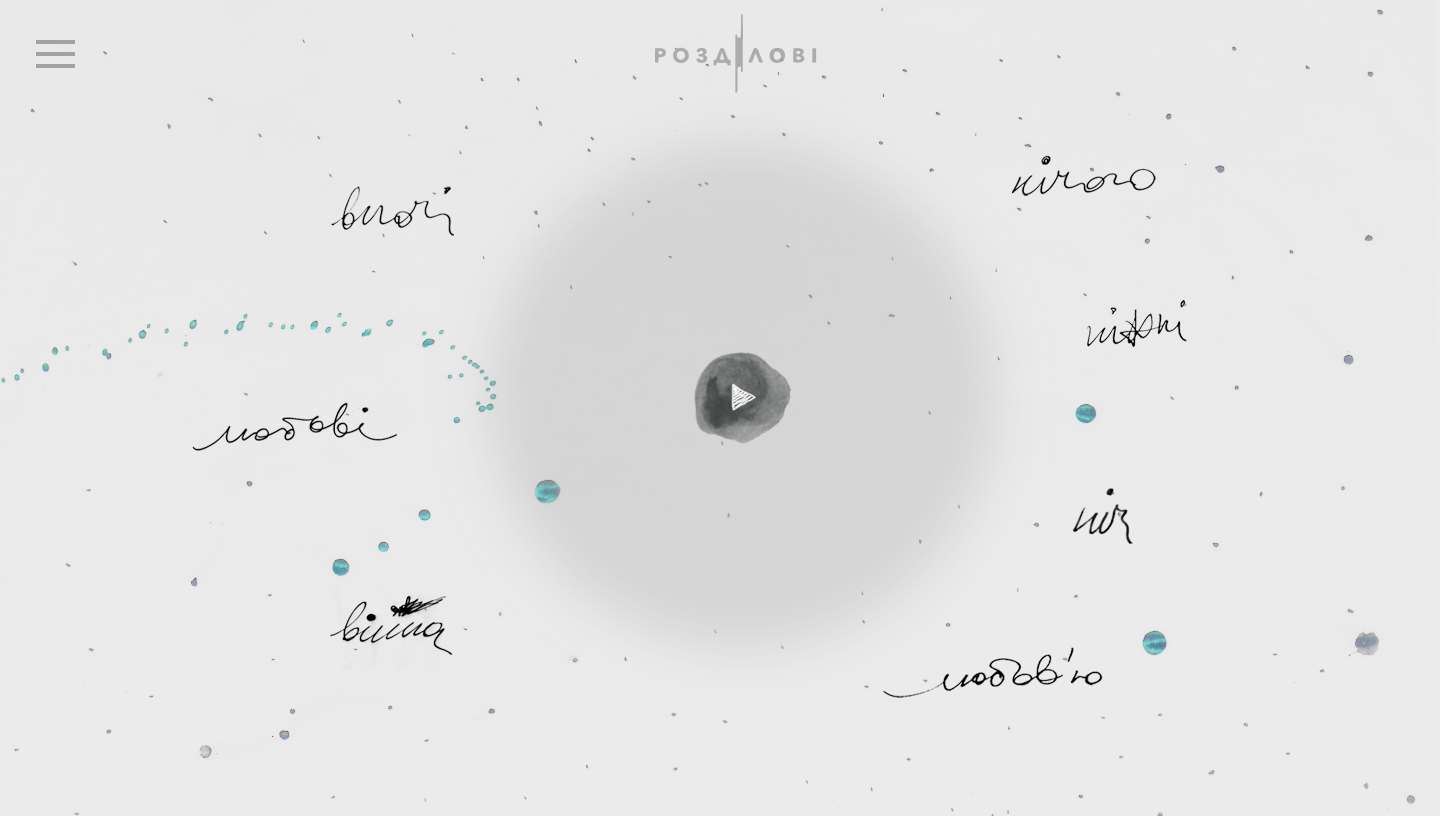 РОЗДІЛОВІ
вночі
нічого
ніжні
любові
ніч
війна
любов'ю